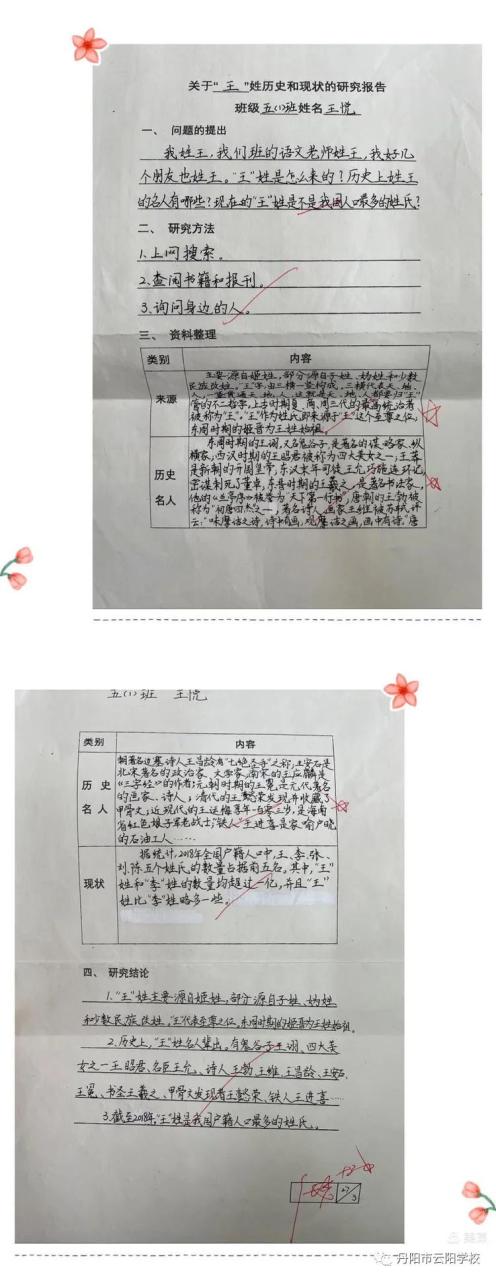 关于“王”姓历史和现状的研究报告
班级五(1)班姓名王悦
一、 问题的提出
我姓王,我们班的语文老师姓王,我好几
个朋友也姓王。“王”姓是怎么来的?历史上姓王
的名人有哪些?现在的“王”姓是不是我国人口最多的姓氏?
二、 研究方法
1.上网搜索。
2.查阅书籍和报刊。
3.询问身边的人。
三、 资料整理
类别 内容
来源
主要源自姬姓,部分源自子姓、妫姓和少数
民族改姓。“王”字由三横一竖构成,三横代表天、地、
人,一竖贯通天、地、人,这就是天、地、人都要归“王”
管的不二哲学,上古时期夏、商、周三代的最高统治者
被称为“王”。“王”作为姓氏即来源于“王”这个至尊之位,
东周时期的姬晋为王姓始祖。
历史
名人
东周时期的王诩,又名鬼谷子,是著名的谋略家、纵
横家;西汉时期的王昭君被称为四大美女之一;王莽
是新朝的开国皇帝,东汉末年司徒王允巧施连环计,
密谋刺死了董卓,东晋时期的王羲之,是著名书法家,
他的《兰亭序》被誉为“天下第一行书”,唐朝的王勃被
称为“初唐四杰之一”,著名诗人、画家王维被苏轼评
云:“味摩诘之诗,诗中有画,观摩诘之画,画中有诗。”唐
五(1)班 王悦
类别 内容
历 史
名 人
朝著名边塞诗人王昌龄有“七绝圣手”之称,王安石是
北宋著名的政治家、文学家,南宋的王应麟是
《三字经》的作者;元朝时期的王冕是元代著名
的画家、诗人;清代的王懿荣发现并收藏了
甲骨文;近现代的王运梅享年一百零三岁,是海南
省红色娘子军老战士;“铁人”王进喜是家喻户晓
的石油工人……
现状
据统计,2018年全国户籍人口中,王、李、张、
刘、陈五个姓氏的数量占据前五名。其中,“王”
姓和“李”姓的数量均超过一亿,并且“王”
姓比“李”姓略多一些。
四、 研究结论
1.“王”姓主要源自姬姓,部分源自子姓、妫姓
和少数民族改姓,“王”代表至尊之位。东周时期的姬晋为王姓始祖。
2.历史上,“王”姓名人辈出。有鬼谷子王诩、四大美
女之一王昭君、名臣王允、诗人王勃、王维、王昌龄、王安石、
王冕、书圣王羲之、甲骨文发现者王懿荣、铁人王进喜……
3.截至2018年,“王”姓是我国户籍人口最多的姓氏。
27/3
美篇
丹阳市云阳学校